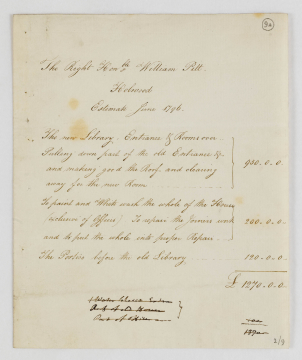 The Right Honble William Pitt
Holwood
Estimate June 1796.
The new Library, Entrance & Rooms over
Pulling down part of the old Entrance &c
and making good the Roof, and clearing
away for the new Room
950.0.0.
To paint and White wash the whole of the House
exclusive of Offices) To repair the Joiners work
and to put the whole into proper Repair
200.0.0.
The Portico before the old Library
120.0.0.
£ 1270.0.0.
Water Closet
out of old House
out of Office
2/9